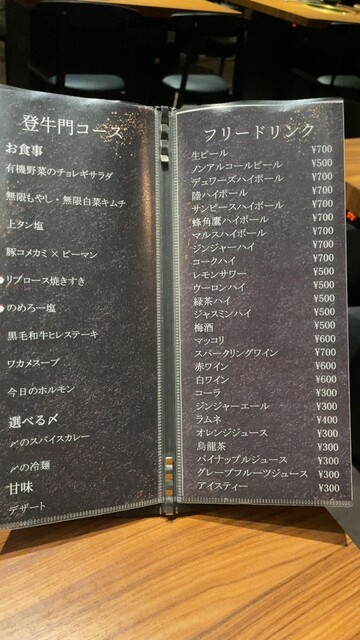 登牛門コース
お食事
有機野菜のチョレギサラダ
無限もやし・無限白菜キムチ
上タン塩
豚コメカミ×ピーマン
リブロース焼きすき
のめろー塩
黒毛和牛ヒレステーキ
ワカメスープ
今日のホルモン
選べる〆
〆のスパイスカレー
〆の冷麺
甘味
デザート
フリードリンク
生ビール ¥700
ノンアルコールビール ¥500
デュワーズハイボール ¥700
陸ハイボール ¥700
サンピースハイボール ¥700
蜂角鷹ハイボール ¥700
マルスハイボール ¥700
ジンジャーハイ ¥700
コークハイ ¥700
レモンサワー ¥500
ウーロンハイ ¥500
緑茶ハイ ¥500
ジャスミンハイ ¥500
梅酒 ¥500
マッコリ ¥500
スパークリングワイン ¥700
赤ワイン ¥600
白ワイン ¥600
コーラ ¥300
ジンジャーエール ¥300
ラムネ ¥400
オレンジジュース ¥300
烏龍茶 ¥300
パイナップルジュース ¥300
グレープフルーツジュース ¥300
アイスティー ¥300